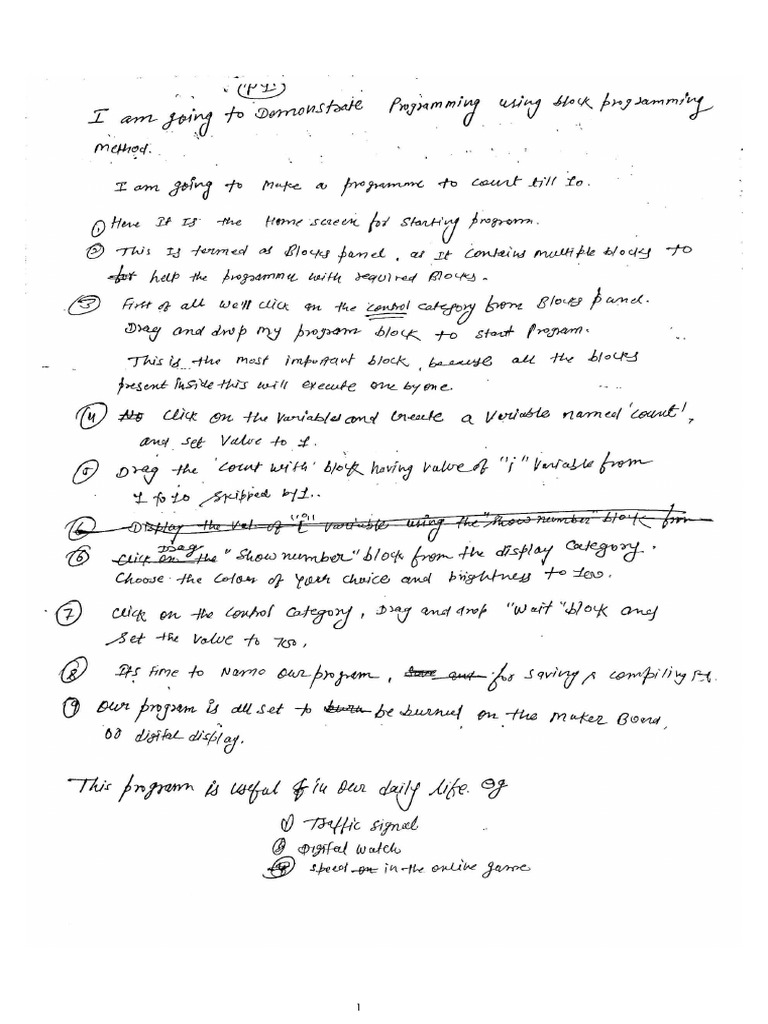 (P 1)
I am going to Demonstrate Programming using block programming
method.
I am going to make a programme to count till 10.
① Here It Is the Home screen for starting program.
② This Is termed as Blocks panel, as It contains multiple blocks to
help the programmer with required Blocks.
③ First of all we'll click on the control category from Blocks panel.
Drag and drop my program block to start Program.
This is the most important block, because all the blocks
present inside this will execute one by one.
④ Click on the variables and create a variable named 'count',
and set value to 1.
⑤ Drag the 'count with' block having value of "i" variable from
1 to 10 skipped by 1.
6 Display the val of "i" variable using the "Show number" block from
⑥ Click on the Drag "Show number" block from the display category.
Choose the colour of your choice and brightness to 100.
⑦ Click on the control category, Drag and drop "wait" block and
set the value to 700.
⑧ Its time to Name our program, Save and for saving & compiling
⑨ Our program is all set to burn be burned on the Maker Board,
digital display.
This program is useful in our daily life. eg
① Traffic signal
② Digital watch
speed on in the online game
1